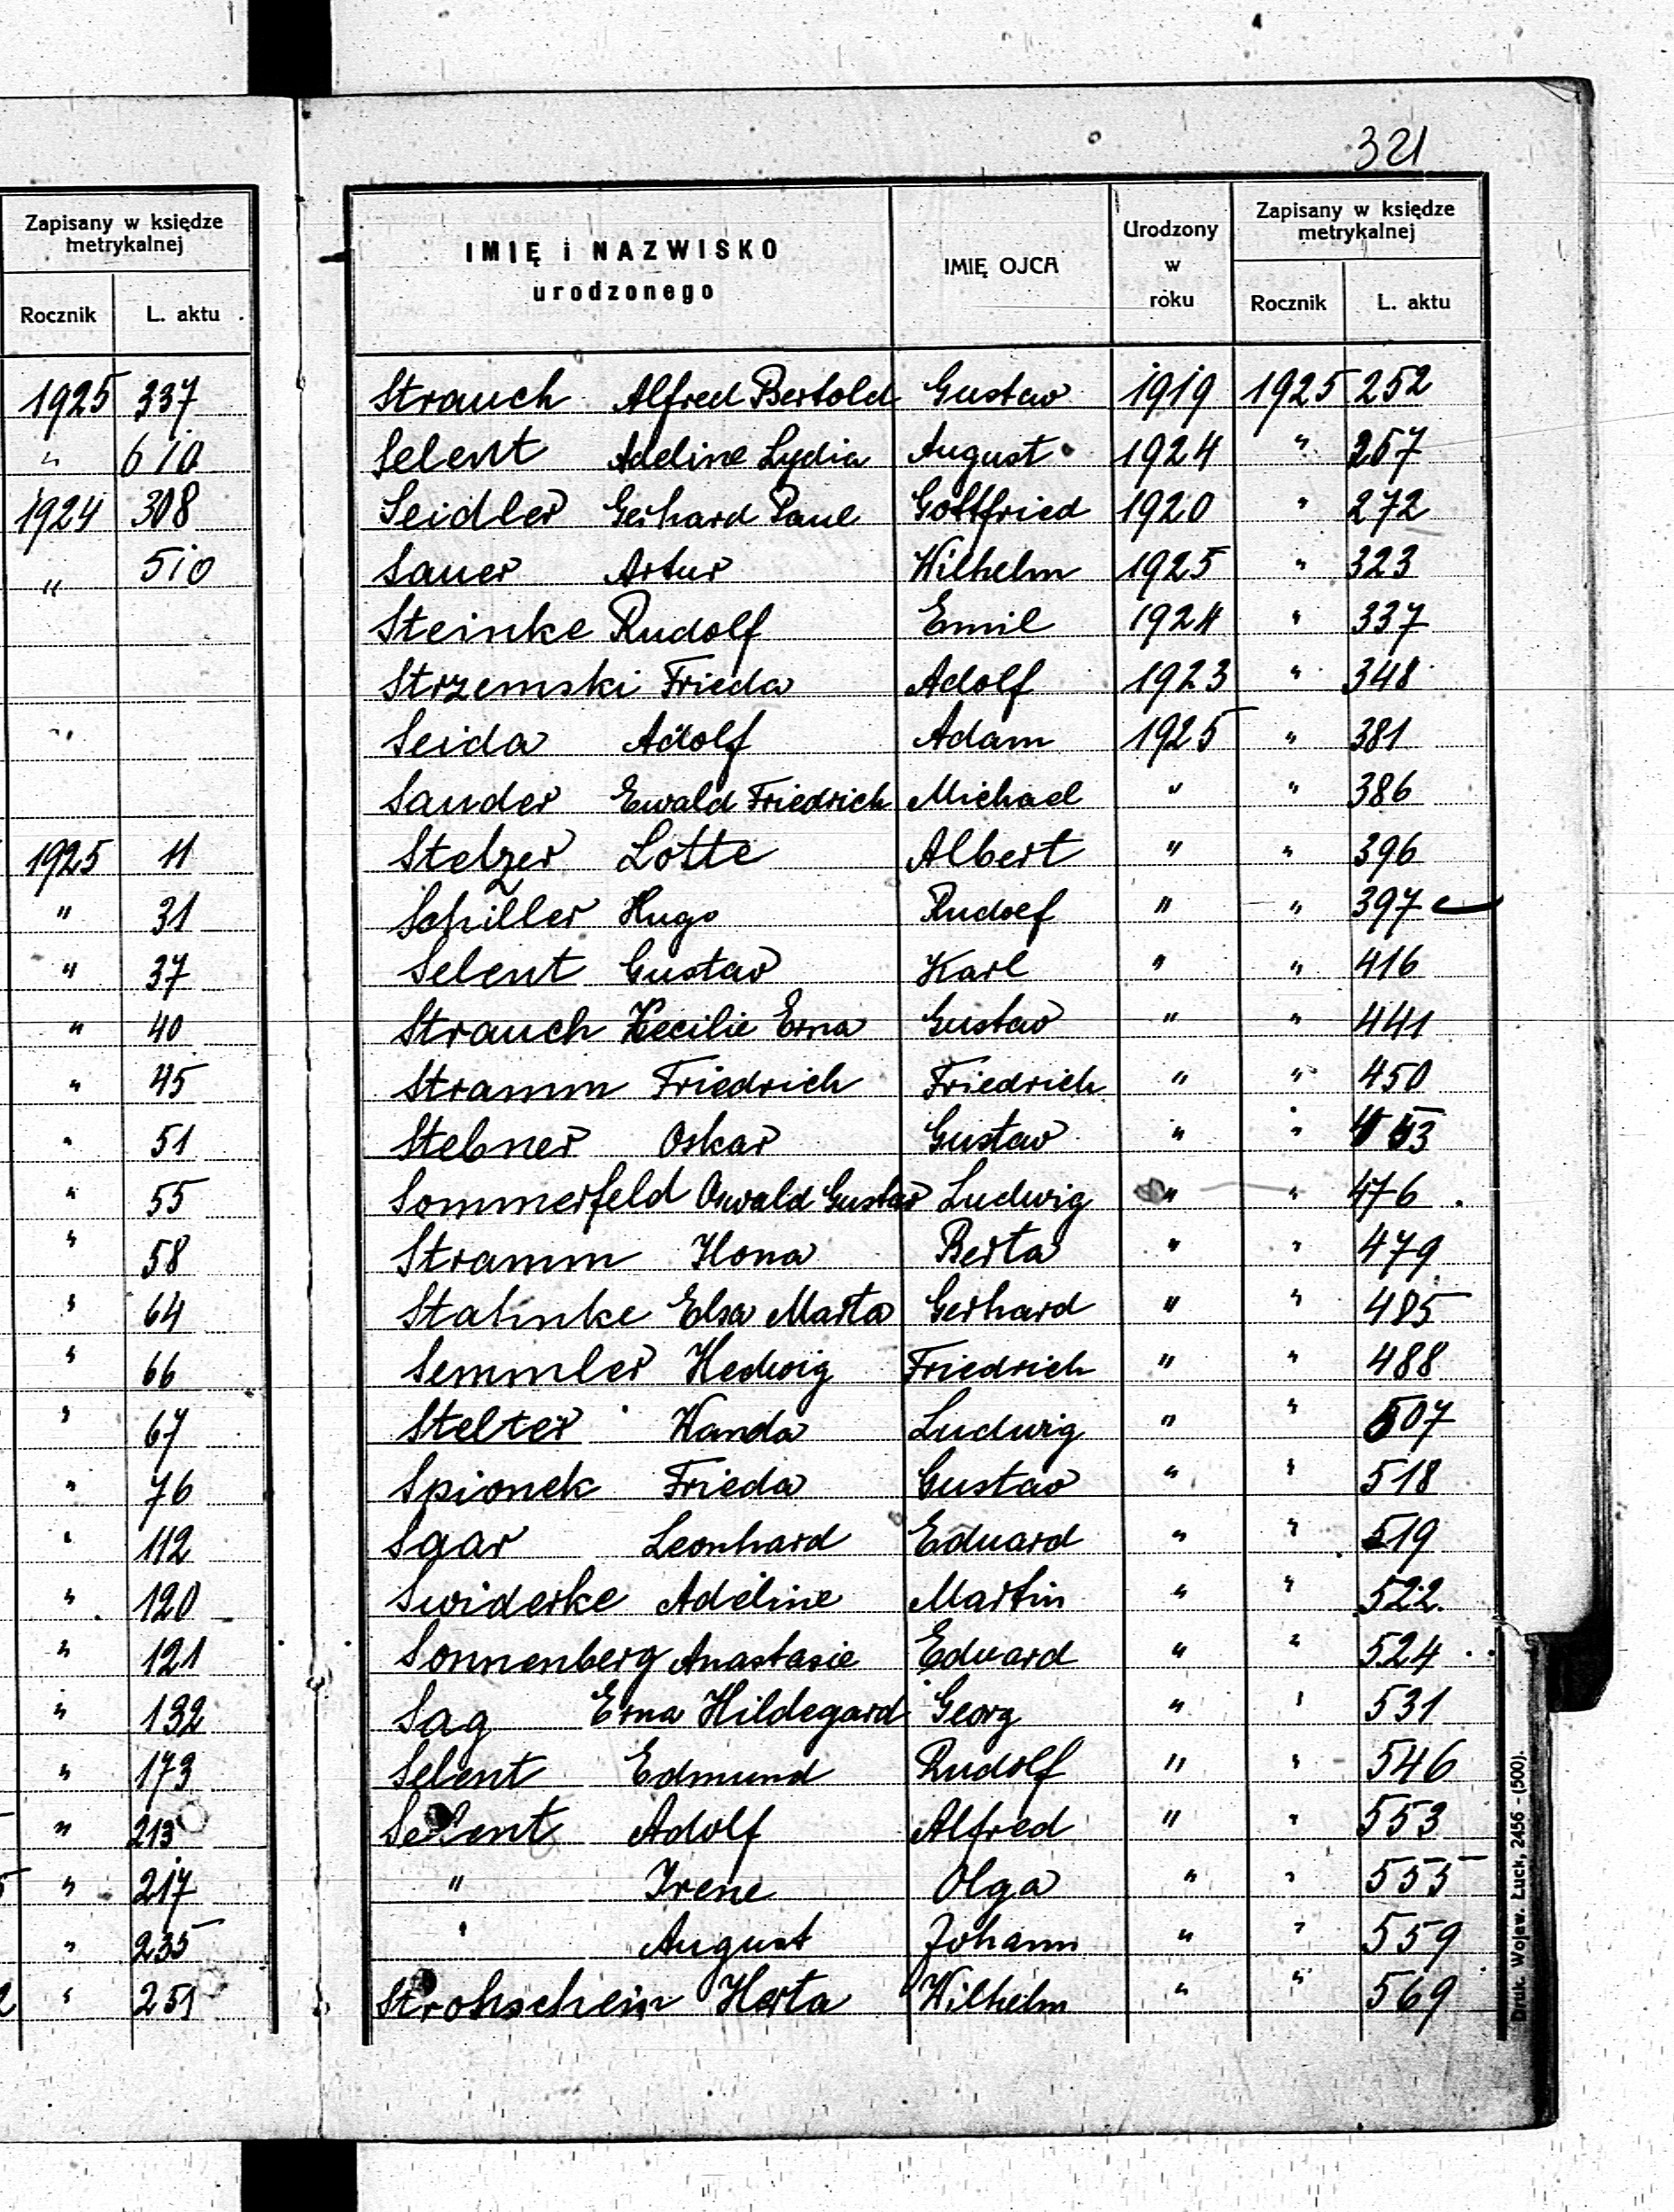 321
Zapisany w księdze
metrykalnej
Rocznik L. aktu
1925 337
" 610
1924 308
" 510
"
1925 11
" 31
" 37
" 40
" 45
" 51
" 55
" 58
" 64
" 66
" 67
" 76
" 112
" 120
" 121
" 132
" 173
" 213
" 217
" 235
" 251
IMIĘ i NAZWISKO
urodzonego
IMIĘ OJCA
Urodzony
w
roku
Zapisany w księdze
metrykalnej
Rocznik L. aktu
Strauch Alfred Bertold Gustav 1919 1925 252
Selent Adeline Lydia August 1924 " 267
Seidler Gerhard Paul Gottfried 1920 " 272
Sauer Artur Wilhelm 1925 " 323
Steinke Rudolf Emil 1924 " 337
Strzemski Frieda Adolf 1923 " 348
Seida Adolf Adam 1925 " 381
Sander Ewald Friedrich Michael " " 386
Stelzer Lotte Albert " " 396
Schiller Hugo Rudolf " " 397
Selent Gustav Karl " " 416
Strauch Kecilie Erna Gustav " " 441
Stramm Friedrich Friedrich " " 450
Stebner Oskar Gustav " "
Sommerfeld Oswald Gustav Ludwig " " 476
Stramm Ilona Berta " " 479
Stahnke Elsa Marta Gerhard " " 485
Semmler Hedwig Friedrich " " 488
Stelter Wanda Ludwig " " 507
Spionek Frieda Gustav " " 518
Saar Leonhard Eduard " " 519
Swiderke Adeline Martin " " 522
Sonnenberg Anastasie Eduard " " 524
Sag Erna Hildegard Georg " " 531
Selent Edmund Rudolf " " 546
Selent Adolf Alfred " " 553
" Irene Olga " " 555
" August Johann " " 559
Strohschein Herta Wilhelm " " 569
Druk. Wojew. Łuck, 2456 - (500).